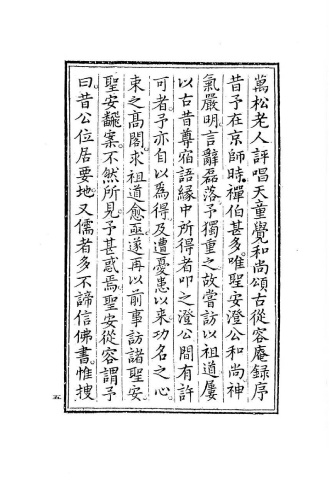 萬松老人評唱天童覺和尚頌古從容庵錄序
昔予在京師時。禪伯甚多。唯聖安澄公和尚。神
氣嚴明。言辭磊落。予獨重之。故嘗訪以祖道。屢
以古昔尊宿語緣中所得者叩之。澄公間有許
可者。予亦自以為得。及遭憂患以來。功名之心。
束之高閣。求祖道愈亟。遂再以前事訪諸聖安。
聖安飜案。不然所見。予甚惑焉。聖安從容謂予
曰。昔公位居要地。又儒者多不諦信佛書。惟搜
五